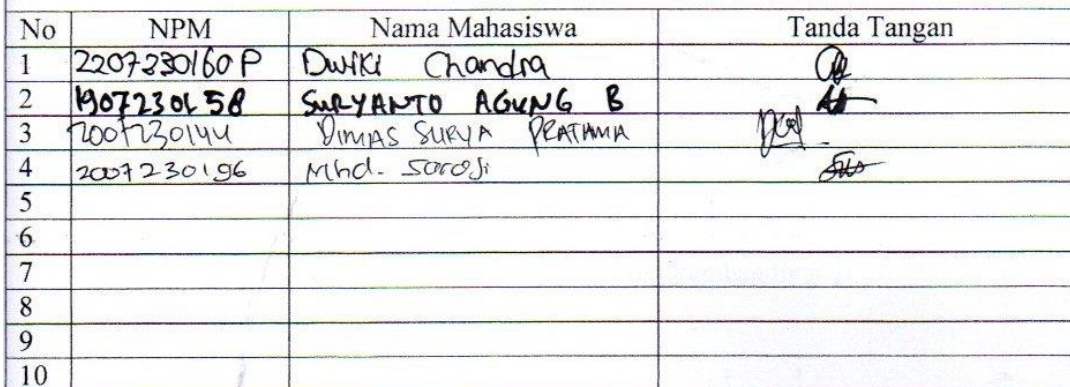 No NPM Nama Mahasiswa Tanda Tangan
1 2207230160P Dwiki Chandra
2 1907230158 SURYANTO AGUNG B
3 2007230144 DIMAS SURYA PRATAMA
4 2007230196 Mhd. Saroji
5
6
7
8
9
10